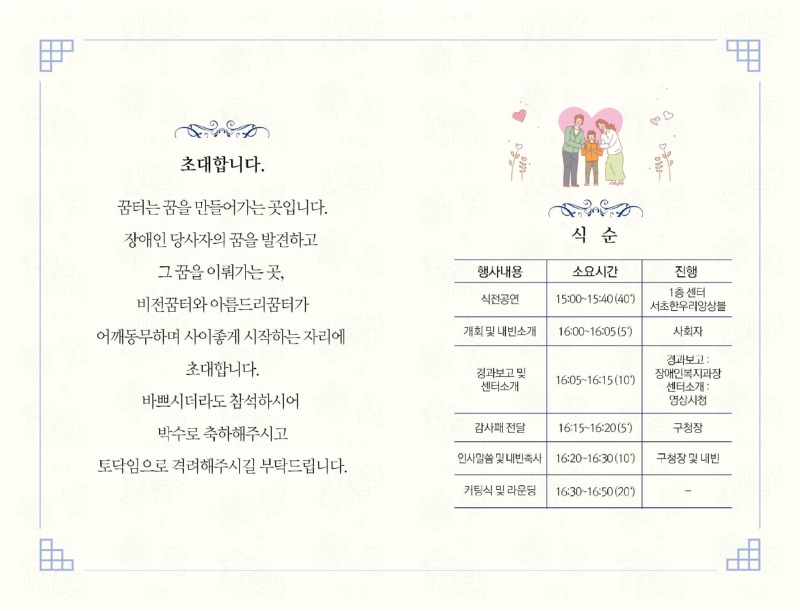 초대합니다.
꿈터는 꿈을 만들어가는 곳입니다.
장애인 당사자의 꿈을 발견하고
그 꿈을 이뤄가는 곳,
비전꿈터와 아름드리꿈터가
어깨동무하며 사이좋게 시작하는 자리에
초대합니다.
바쁘시더라도 참석하시어
박수로 축하해주시고
토닥임으로 격려해주시길 부탁드립니다.
식 순
행사내용 소요시간 진행
식전공연 15:00~15:40(40') 1층 센터
서초한우리앙상블
개회 및 내빈소개 16:00~16:05(5') 사회자
경과보고 및
센터소개 16:05~16:15(10') 경과보고 :
장애인복지과장
센터소개 :
영상시청
감사패 전달 16:15~16:20(5') 구청장
인사말씀 및 내빈축사 16:20~16:30(10') 구청장 및 내빈
커팅식 및 라운딩 16:30~16:50(20') –